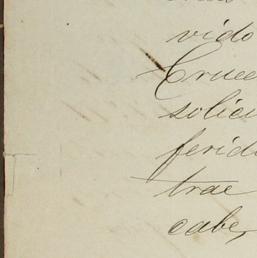 vido
Cruce
solici
ferid
trae
cabe,